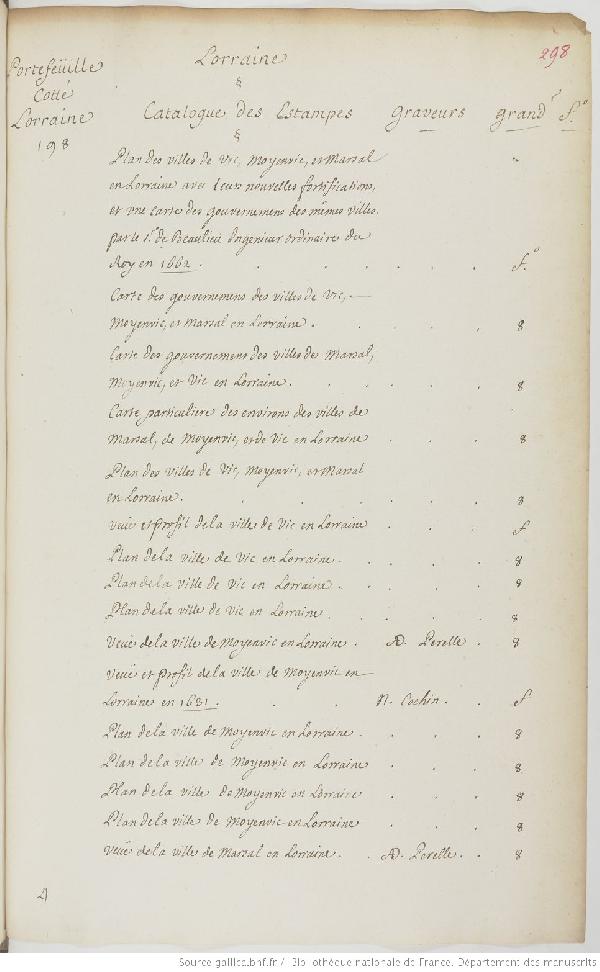 298
Portefeüille
Cotté
Lorraine
198
Lorraine
§
Catalogue des Estampes Graveurs grand.r f.o
§
Plan des villes de Vic, Moyenvic, et Marsal
en Lorraine avec leurs nouvelles fortifications,
et vne carte des gouvernemens des mêmes villes.
par le s.r de Beaulieu Ingenieur ordinaire du
Roy en 1662. f.o
Carte des gouvernemens des villes de Vic,
Moyenvic, et Marsal en Lorraine. 8
Carte des gouvernemens des villes de Marsal,
Moyenvic, et Vic en Lorraine. 8
Carte particuliere des environs des villes de
Marsal, de Moyenvic, et de Vic en Lorraine 8
Plan des villes de Vic, Moyenvic, et Marsal
en Lorraine. 8
Veüe et profil de la ville de Vic en Lorraine f
Plan de la ville de Vic en Lorraine. 8
Plan de la ville de Vic en Lorraine. 8
Plan de la ville de Vic en Lorraine. 8
Veüe de la ville de Moyenvic en Lorraine. AD. Perelle. 8
Veüe et profil de la ville de Moyenvic en
Lorraine en 1631. N. Cochin. f
Plan de la ville de Moyenvic en Lorraine. 8
Plan de la ville de Moyenvic en Lorraine 8
Plan de la ville de Moyenvic en Lorraine 8
Plan de la ville de Moyenvic en Lorraine 8
Veüe de la ville de Marsal en Lorraine. AD. Perelle. 8
A
Source gallica.bnf.fr / Bibliothèque nationale de France. Département des manuscrits